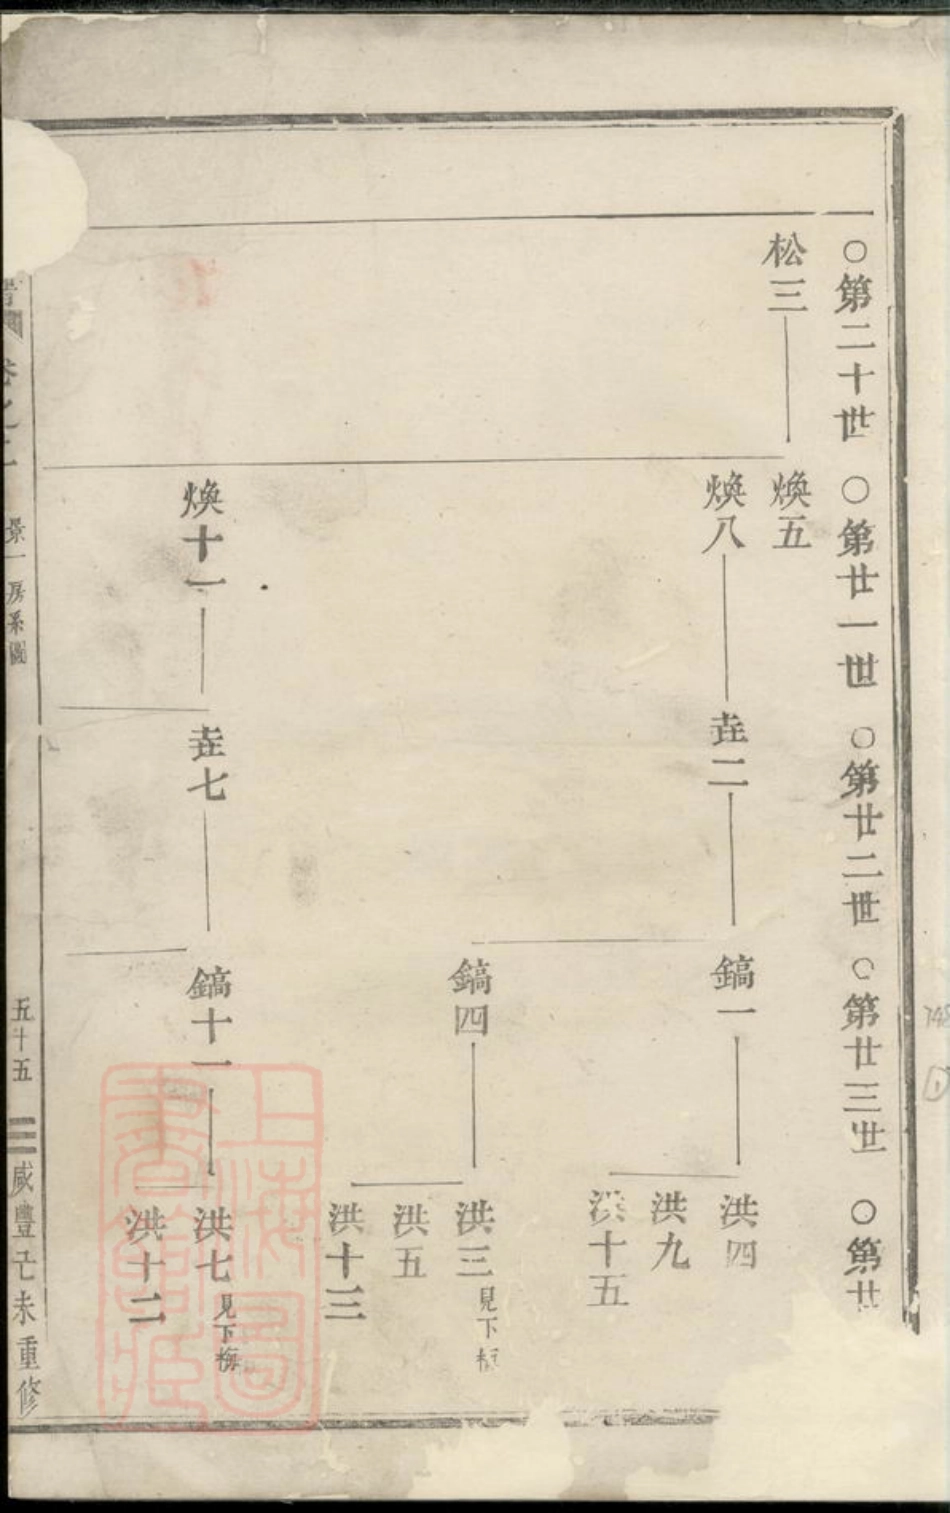 ○第二十世　○第廿一世　○第廿二世　○第廿三世　○第廿
松三
煥五
煥八　垚二　鎬一　洪四
洪九
洪十五
鎬四　洪三見下
洪五
洪十三
煥十一　垚七　鎬十一　洪七見下梅
洪十二
卷之二　景一房系圖　五十五　咸豐己未重修
上海圖書館藏